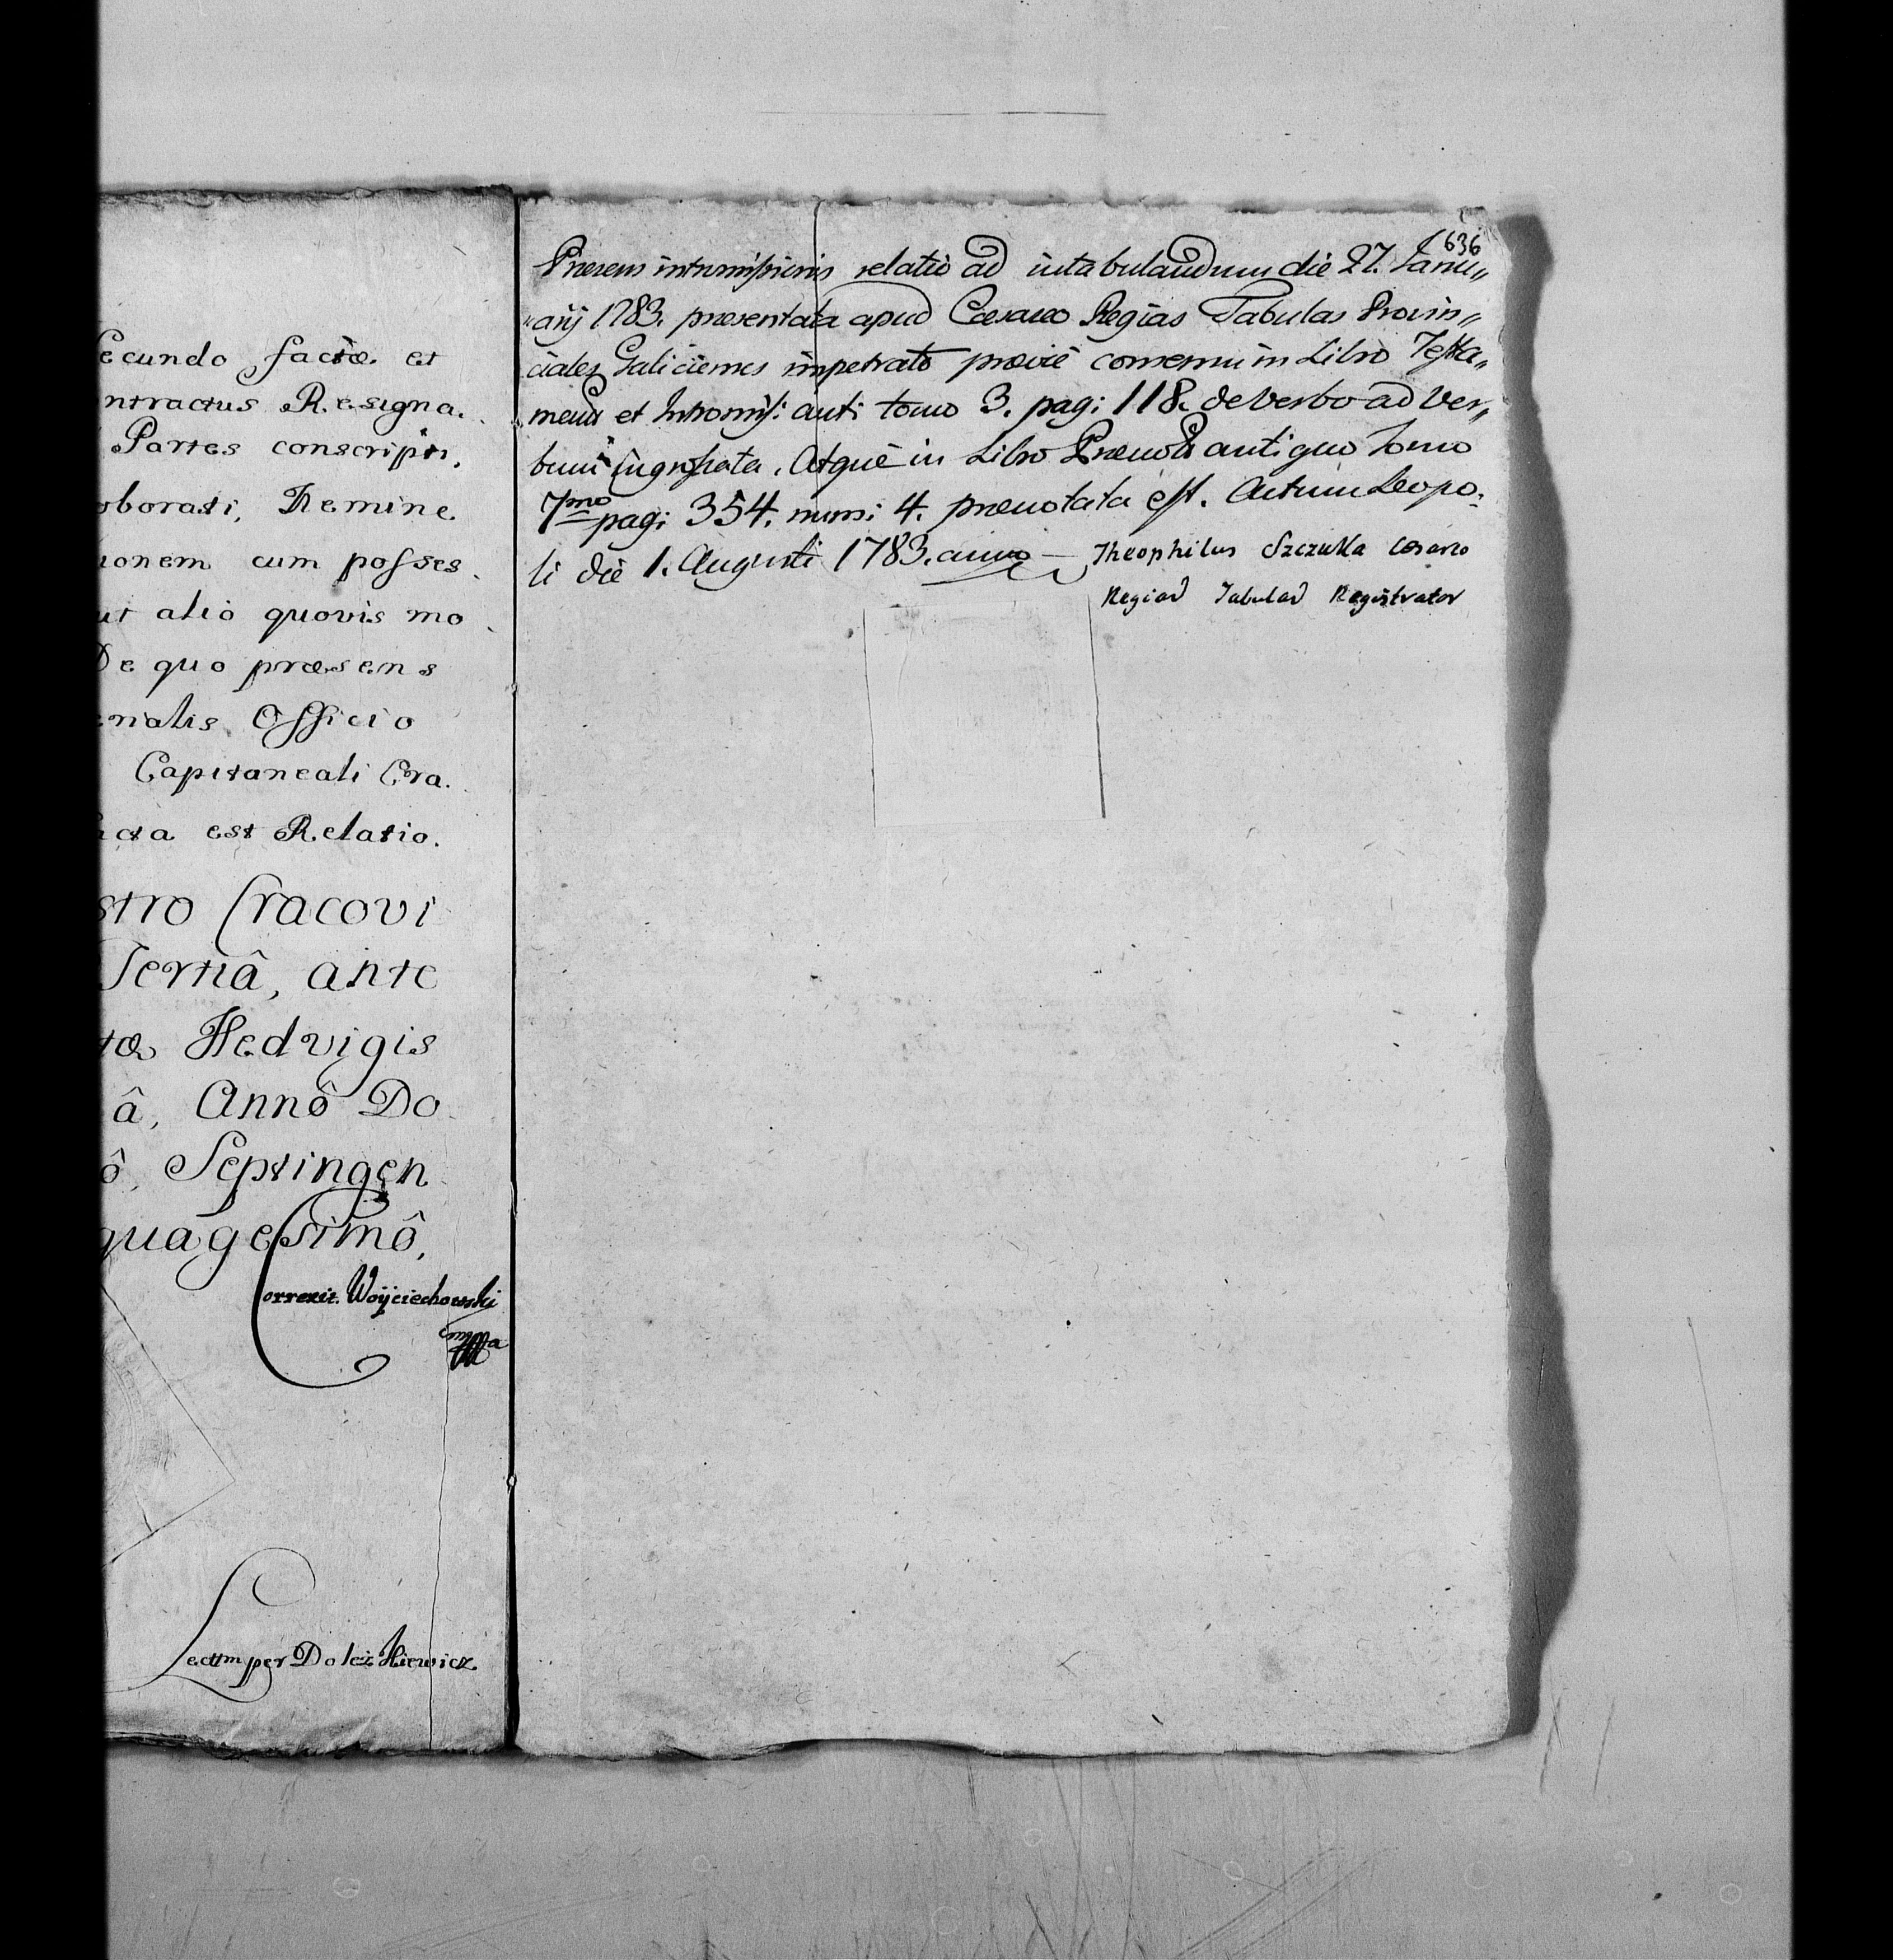 ecundo factæ et
ntractus Resigna.
Partes conscripti,
oborati, Nemine
ionem cum posses
ut alio quovis mo
De quo præsens
enalis Officio
Capitaneali Cra.
acta est Relatio.
stro Cracovi
Tertiâ, ante
tæ Hedvigis
â, Annô Do
ô, Septingen
quagesimô,
Correxit Woyciechowski
mppa
Lectm per Doleż Kiewicz
636
Præsens intromissionis relatio ad intabulandum die 27. Janu„
„arij 1783. præsentata apud Cæsareo Regias Tabulas Provin„
ciales Galicienses impetrato prævie consensu in Libro Testa„
ment et Intromis: anti tomo 3. pag: 118. de verbo ad ver„
bum ingrossata. Atque in Libro Prænot antiquo Tomo
7mo pag: 354. num: 4. prænotata est. Actum Leopo:
li die 1. Augusti 1783. anno —
Theophilus Szczutka Cæsareo
Regiar Tabular Registrator